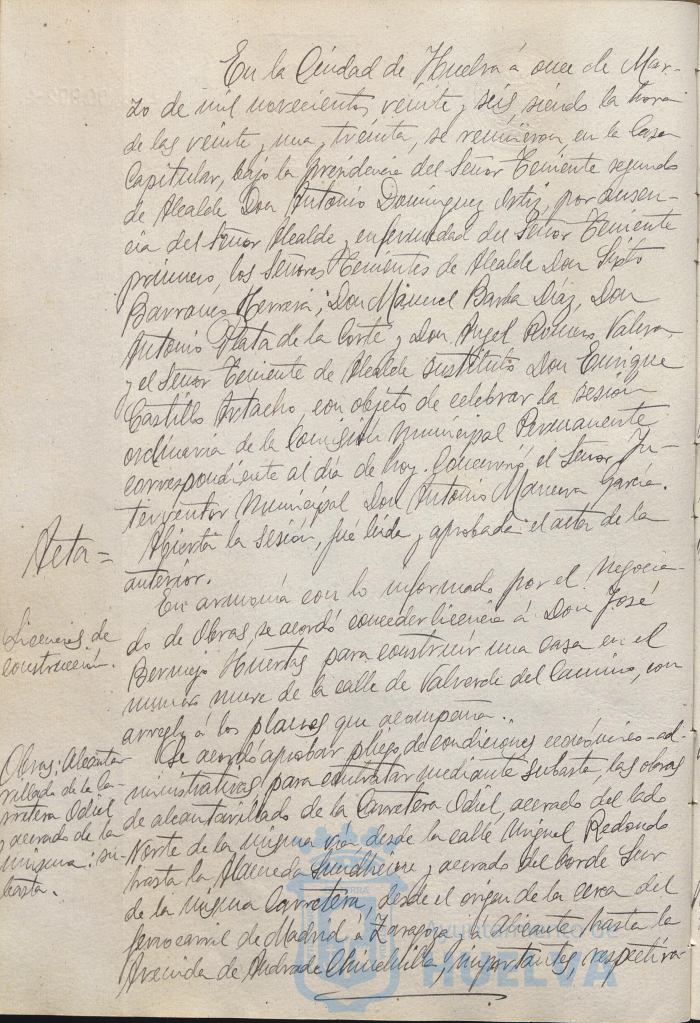 En la Ciudad de Huelva á once de Mar-
zo de mil novecientos veinte y seis, siendo la hora
de las veinte y una y treinta, se reunieron en la Casa
Capitular, bajo la presidencia del Señor Teniente segundo
de Alcalde Don Antonio Dominguez Ortiz, por ausen-
cia del Señor Alcalde y enfermedad del Señor Teniente
primero, los Señores Tenientes de Alcalde Don Sixto
Barranco Herrera, Don Manuel Barba Díaz, Don
Antonio Plata de la Corte y Don Angel Romero Valera,
y el Señor Teniente de Alcalde sustituto Don Enrique
Castillo Artacho, con objeto de celebrar la sesión
ordinaria de la Comisión Municipal Permanente
correspondiente al dia de hoy. Concurrió el Señor In-
terventor Municipal Don Antonio García.
Acta=
Abierta la sesión, fué leida y aprobada el acta de la
anterior.
Licencias de
construcción.
En armonía con lo informado por el Negocia-
do de Obras, se acordó conceder licencia á Don José
Bermejo Huertas para construir una casa en el
numero nueve de la calle de Valverde del Camino, con
arreglo á los planos que acompaña.
Obras: Alcantar
rillado de la Ca-
rretera Odiel
y acerado de la
misma: su-
basta.
Se acordó aprobar pliego de condiciones económico-ad-
ministrativas para contratar mediante subasta, las obras
de alcantarillado de la Carretera Odiel, acerado del lado
Norte de la misma vía, desde la calle Miguel Redondo
hasta la Alameda Sundheim y acerado del borde Sur
de la misma Carretera, desde el origen de la cerca del
ferrocarril de Madrid á Zaragoza y á Alicante, hasta la
Avenida de Andrade Chinchilla, importantes, respectiva-
Ayuntamiento de
HUELVA